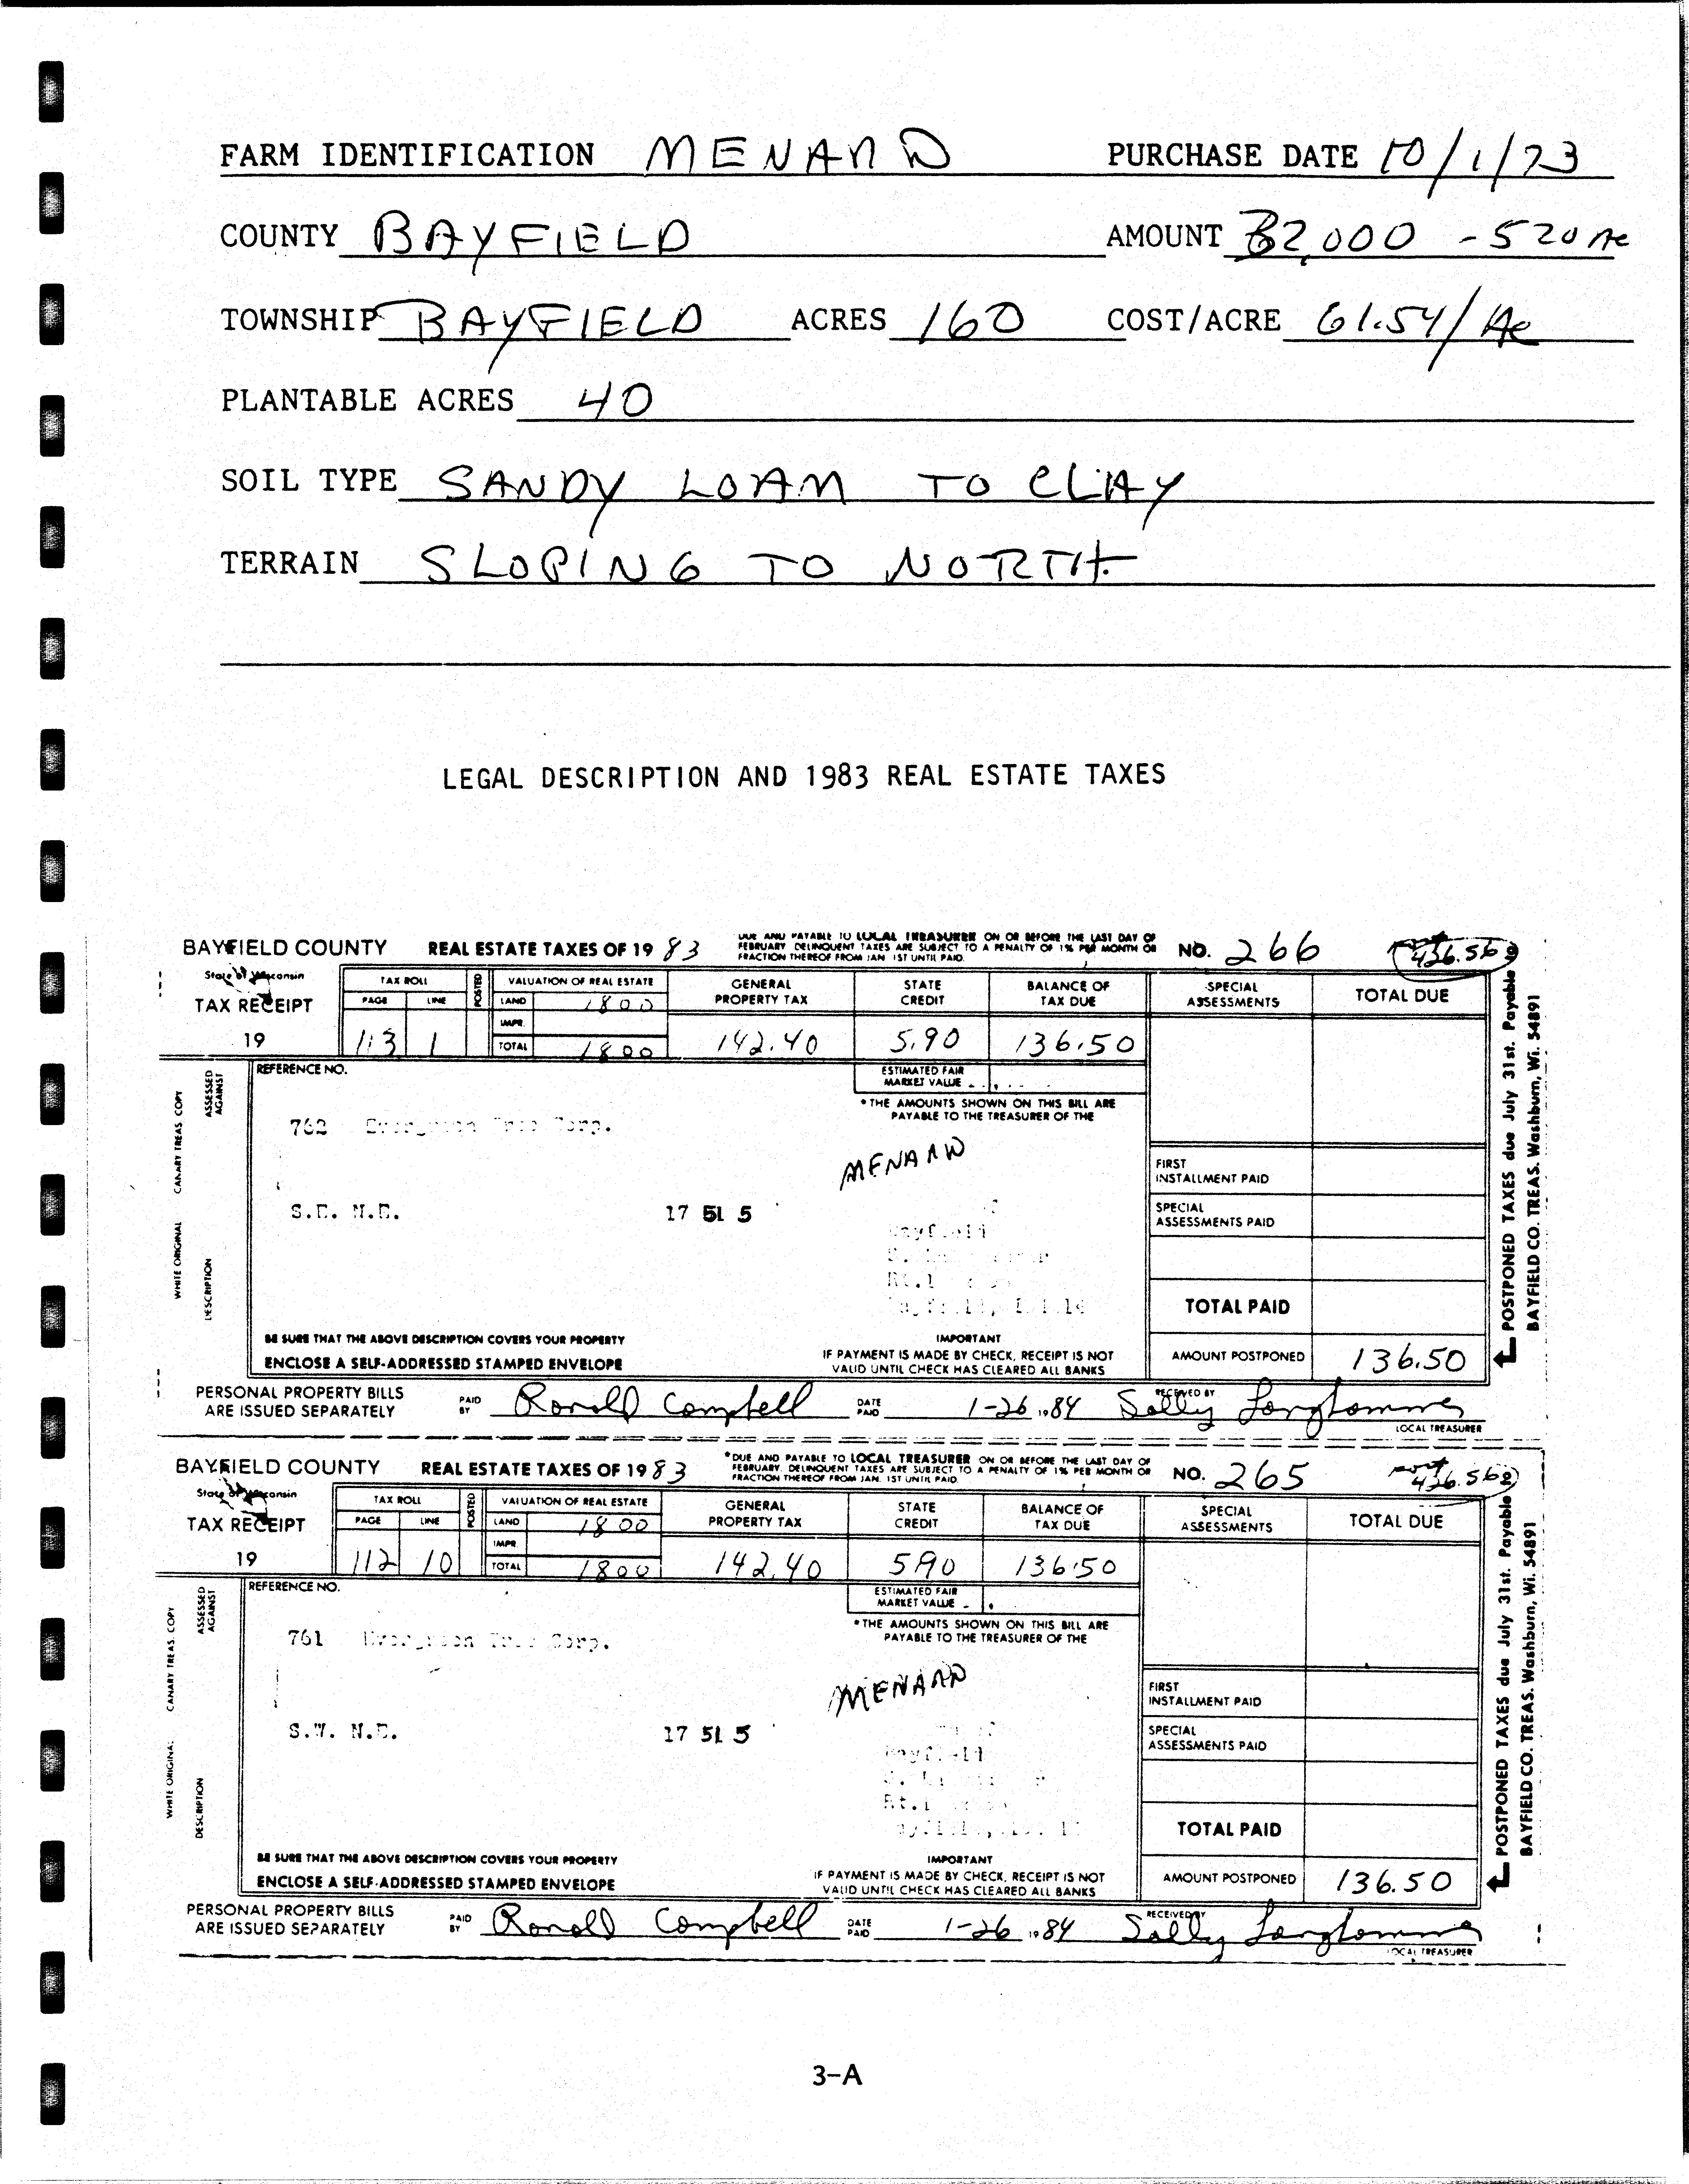 FARM IDENTIFICATION MENARD PURCHASE DATE 10/1/73
COUNTY BAYFIELD AMOUNT 32,000 - 520 Ac
TOWNSHIP BAYFIELD ACRES 160 COST/ACRE 61.54/Ac
PLANTABLE ACRES 40
SOIL TYPE SANDY LOAM TO CLAY
TERRAIN SLOPING TO NORTH
LEGAL DESCRIPTION AND 1983 REAL ESTATE TAXES
BAYFIELD COUNTY REAL ESTATE TAXES OF 19 83
DUE AND PAYABLE TO LOCAL TREASURER ON OR BEFORE THE LAST DAY OF
FEBRUARY DELINQUENT TAXES ARE SUBJECT TO A PENALTY OF 1% PER MONTH OR
FRACTION THEREOF FROM JAN 1ST UNTIL PAID.
NO. 266
436.56
State of Wisconsin
TAX RECEIPT
19
TAX ROLL POSTED VALUATION OF REAL ESTATE GENERAL PROPERTY TAX STATE CREDIT BALANCE OF TAX DUE SPECIAL ASSESSMENTS TOTAL DUE
PAGE LINE LAND 1800
IMPR.
113 1 TOTAL 1800 142.40 5.90 136.50
REFERENCE NO.
ESTIMATED FAIR
MARKET VALUE
ASSESSED AGAINST
* THE AMOUNTS SHOWN ON THIS BILL ARE
PAYABLE TO THE TREASURER OF THE
762 Evergreen Tree Corp.
MENARD
FIRST
INSTALLMENT PAID
S.E. N.E. 17 51 5
SPECIAL
ASSESSMENTS PAID
Bayfield
Rt.1
TOTAL PAID
WHITE ORIGINAL CANARY TREAS COPY
DESCRIPTION
BE SURE THAT THE ABOVE DESCRIPTION COVERS YOUR PROPERTY
ENCLOSE A SELF-ADDRESSED STAMPED ENVELOPE
IMPORTANT
IF PAYMENT IS MADE BY CHECK, RECEIPT IS NOT
VALID UNTIL CHECK HAS CLEARED ALL BANKS
AMOUNT POSTPONED 136.50
POSTPONED TAXES due July 31st. Payable to
BAYFIELD CO. TREAS. Washburn, Wi. 54891
PERSONAL PROPERTY BILLS
ARE ISSUED SEPARATELY
PAID BY Ronald Campbell DATE PAID 1-26 1984 RECEIVED BY Sally
LOCAL TREASURER
BAYFIELD COUNTY REAL ESTATE TAXES OF 19 83
*DUE AND PAYABLE TO LOCAL TREASURER ON OR BEFORE THE LAST DAY OF
FEBRUARY. DELINQUENT TAXES ARE SUBJECT TO A PENALTY OF 1% PER MONTH OR
FRACTION THEREOF FROM JAN. 1ST UNTIL PAID.
NO. 265
436.56
State of Wisconsin
TAX RECEIPT
19
TAX ROLL POSTED VALUATION OF REAL ESTATE GENERAL PROPERTY TAX STATE CREDIT BALANCE OF TAX DUE SPECIAL ASSESSMENTS TOTAL DUE
PAGE LINE LAND 1800
IMPR.
112 10 TOTAL 1800 142.40 5.90 136.50
REFERENCE NO.
ESTIMATED FAIR
MARKET VALUE
ASSESSED AGAINST
* THE AMOUNTS SHOWN ON THIS BILL ARE
PAYABLE TO THE TREASURER OF THE
761 Evergreen Tree Corp.
MENARD
FIRST
INSTALLMENT PAID
S.W. N.E. 17 51 5
SPECIAL
ASSESSMENTS PAID
Bayfield
Rt.1
TOTAL PAID
WHITE ORIGINAL CANARY TREAS. COPY
DESCRIPTION
BE SURE THAT THE ABOVE DESCRIPTION COVERS YOUR PROPERTY
ENCLOSE A SELF-ADDRESSED STAMPED ENVELOPE
IMPORTANT
IF PAYMENT IS MADE BY CHECK, RECEIPT IS NOT
VALID UNTIL CHECK HAS CLEARED ALL BANKS
AMOUNT POSTPONED 136.50
POSTPONED TAXES due July 31st. Payable to
BAYFIELD CO. TREAS. Washburn, Wi. 54891
PERSONAL PROPERTY BILLS
ARE ISSUED SEPARATELY
PAID BY Ronald Campbell DATE PAID 1-26 1984 RECEIVED BY Sally
LOCAL TREASURER
3-A